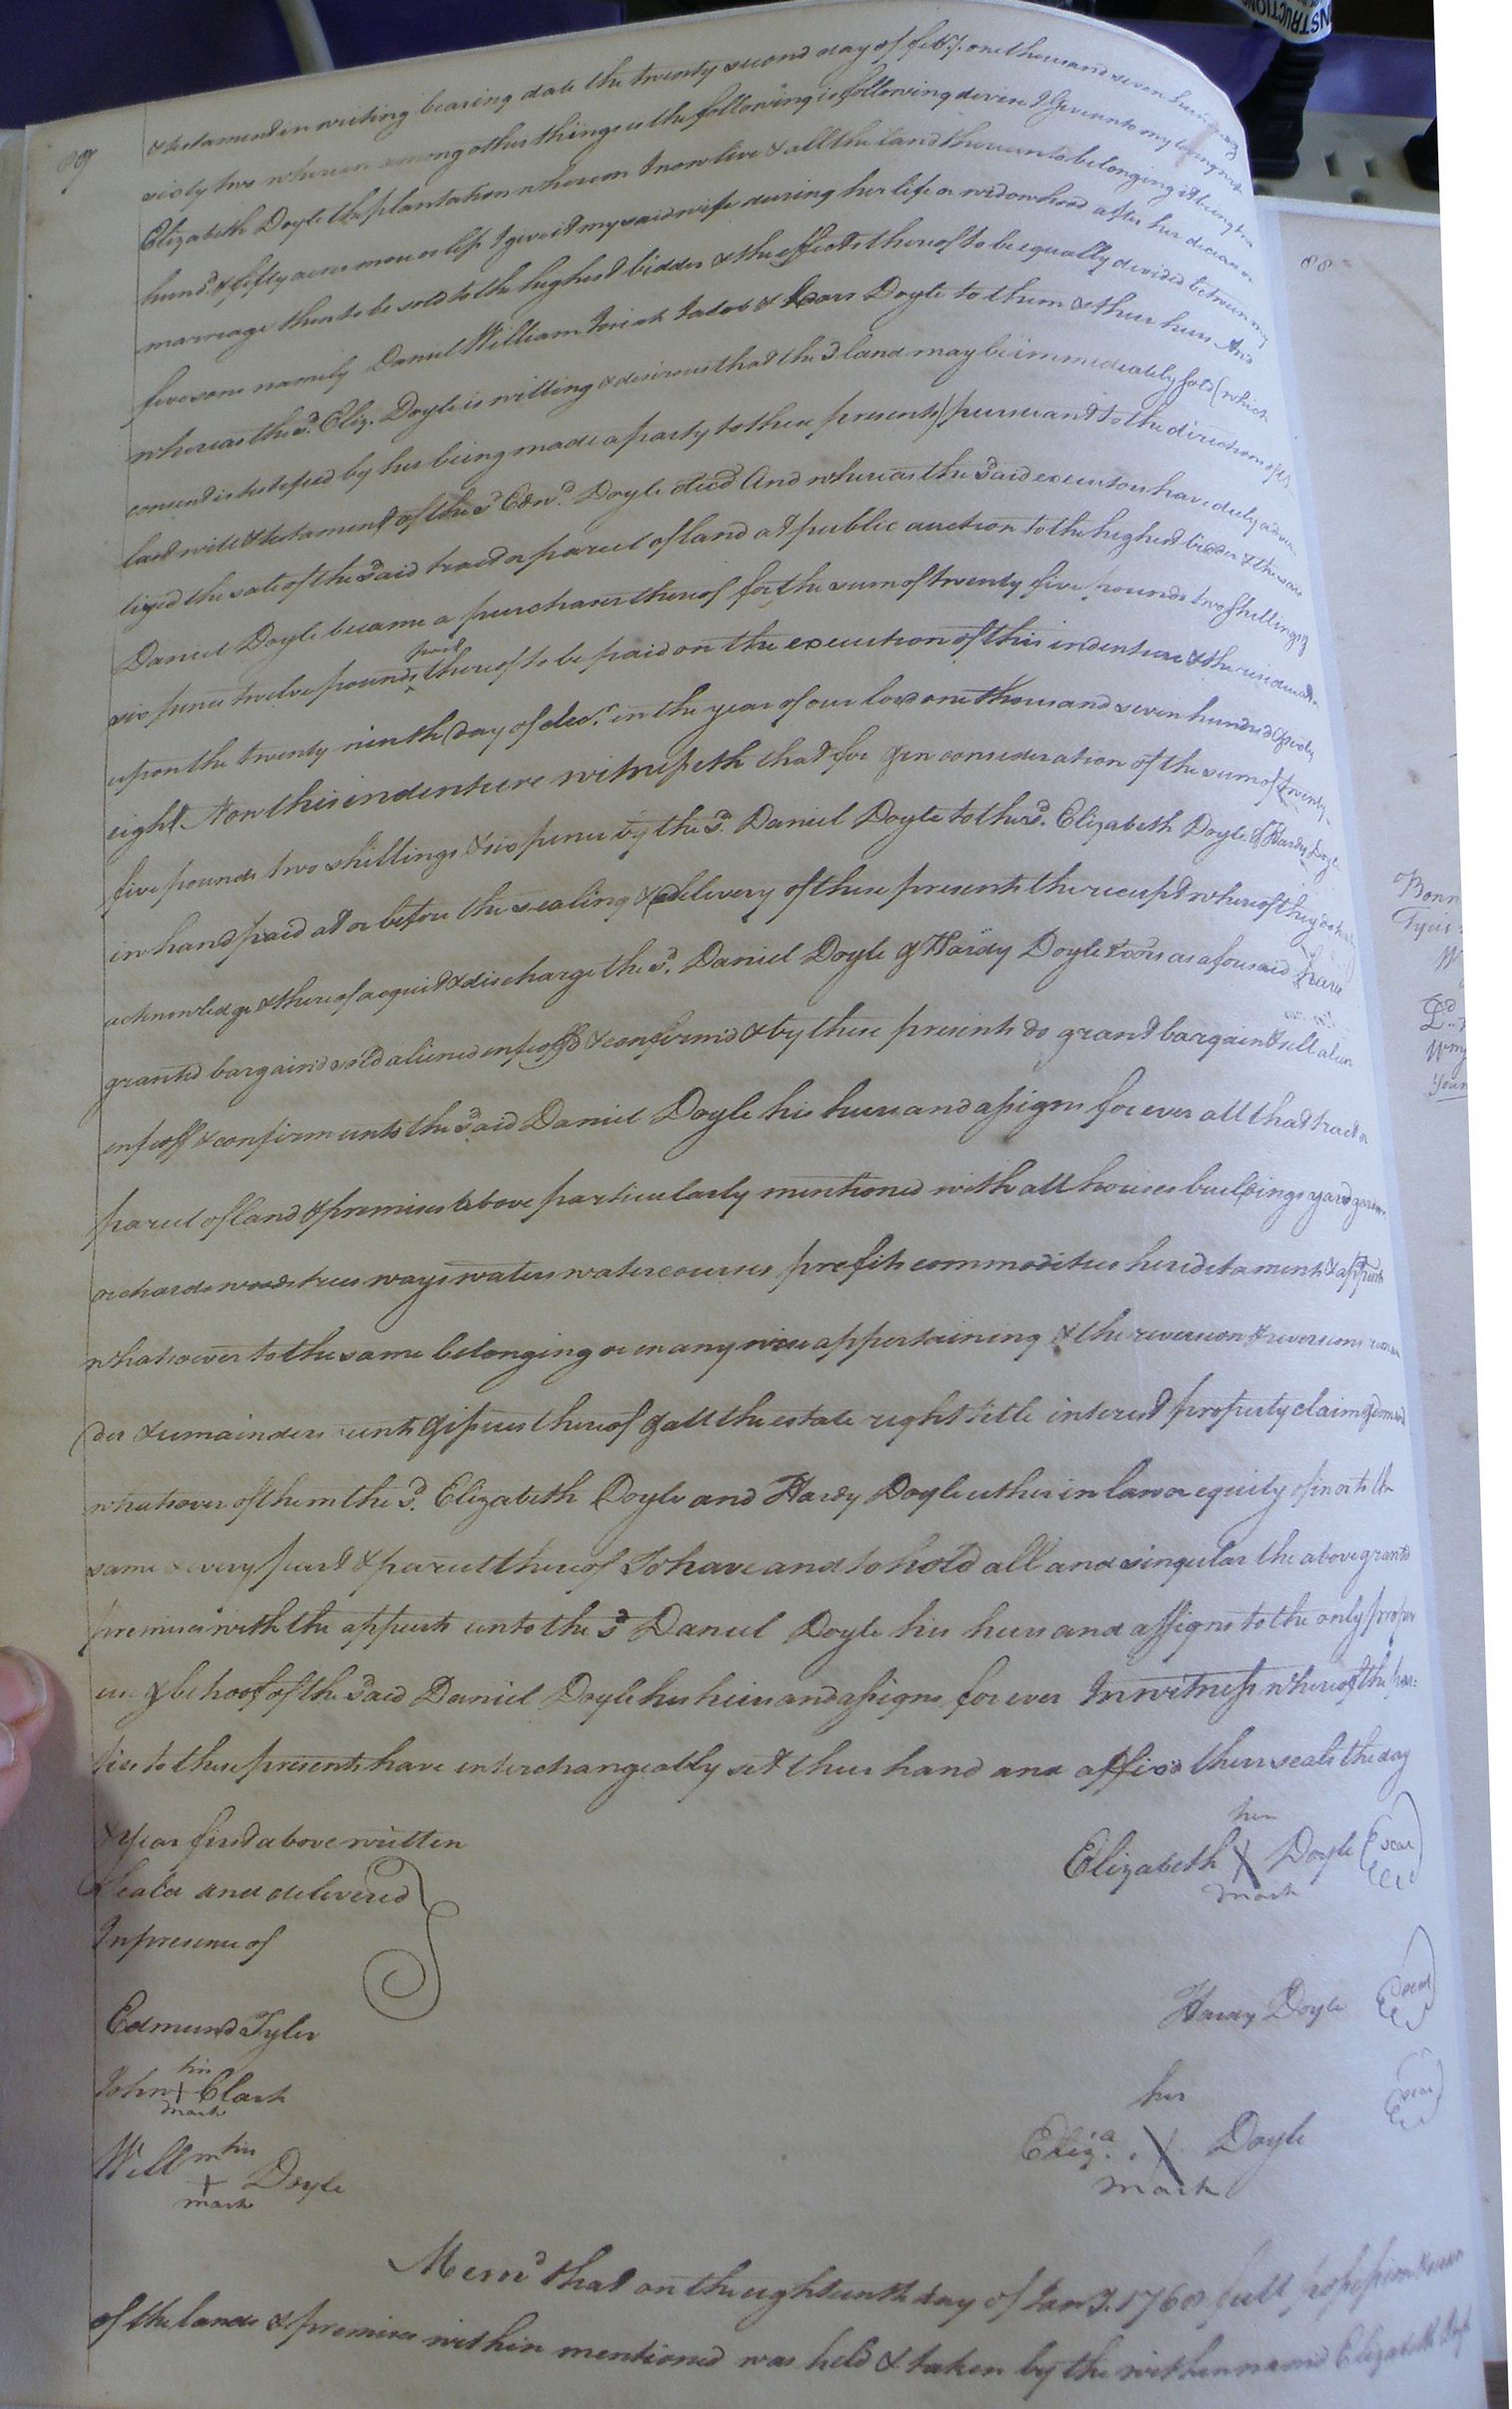 & testament in writing bearing date the twenty second day of feb.y one thousand seven hundred
sixty two wherein among other things is the following is following devise I Give unto my loving wife
Elizabeth Doyle the plantation whereon I now live & all the land thereunto belonging it being two
hund.d & fifty acres more or less I give it my said wife during her life or widowhood after her decease or
marriage then to be sold to the highest bidder & the effects thereof to be equally divided between my
five sons namely Daniel William Jacob & Doyle to them & their heirs And
whereas the s.d Eliz. Doyle is willing & desirous that the s.d land may be immediately sold (which
consent is testefied by her being made a party to these presents) pursuant to the directions of the
last will & testament of the s.d Edw.d Doyle dec.d And whereas the said executors have duly adver
tized the sale of the said tract or parcel of land at public auction to the highest bidder & the said
Daniel Doyle became a purchaser thereof for the sum of twenty five pounds two shillings &
part
six pence twelve pounds thereof to be paid on the execution of this indenture & the residue
upon the twenty ninth day of dec.r in the year of our lord one thousand seven hundred & sixty
eight Now this indenture witnesseth that for & in consideration of the sum of twenty
five pounds two shillings & six pence by the s.d Daniel Doyle to the s.d Elizabeth Doyle & Hardy Doyle
in hand paid at or before the sealing & delivery of these presents the receipt whereof they do hereby
acknowledge & thereof acquit & discharge the s.d Daniel Doyle & Hardy Doyle as aforesaid have
granted bargaind sold aliened enfeoffd & confirmd & by these presents do grant bargain & sell alien
enfeoff & confirm unto the said Daniel Doyle his heirs and assigns for ever all that tract or
parcel of land & premises above particularly mentioned with all houses buildings yard gardens
orchards woods trees ways waters watercourses profits commodities hereditaments & appurts
whatsoever to the same belonging or in any wise appertaining & the reversion & reversions remain
der & remainders rents & issues thereof & all the estate right title interest property claim & demand
whatsoever of them the s.d Elizabeth Doyle and Hardy Doyle either in law or equity of in or to the
same & every part & parcel thereof To have and to hold all and singular the above granted
premises with the appurts unto the s.d Daniel Doyle his heirs and assigns to the only proper
use & behoof of the said Daniel Doyle his heirs and assigns for ever In witness whereof the par=
ties to these presents have interchangeably set their hand and affixd their seals the day
& year first above written
Seald and delivered
In presence of
her
Elizabeth X Doyle (seal)
mark
Edmund Tyler
Hardy Doyle (seal)
his
John + Clark
mark
her
Eliz.a X Doyle (seal)
mark
his
Will m + Doyle
mark
Mem.d that on the eighteenth day of Jan.y 1768 full possession & seizin
of the lands & premises within mentioned was held & taken by the within named Elizabeth Doyle
88